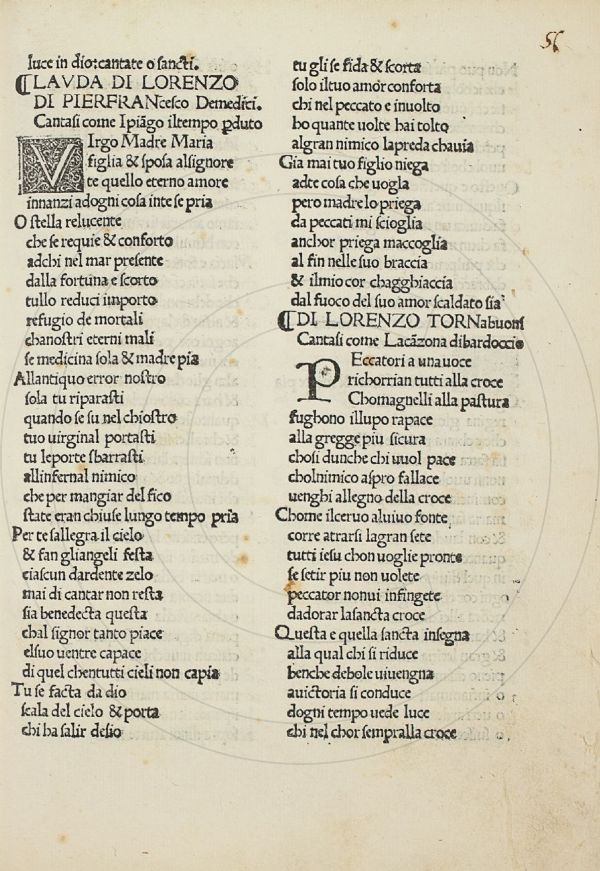 56
luce in dio: cantate o sancti.
⁋LAVDA DI LORENZO
DI PIERFRANcesco Demedici.
Cantasi come Ipiãgo iltempo ꝑduto
VIrgo Madre Maria
figlia & sposa alsignore
te quello eterno amore
innanzi adogni cosa inte se pria
O stella relucente
che se requie & conforto
adchi nel mar presente
dalla fortuna e scorto
tullo reduci importo
refugio de mortali
chanostri eterni mali
se medicina sola & madre pia
Allantiquo error nostro
sola tu riparasti
quando se su nel chiostro
tuo uirginal portasti
tu leporte sbarrasti
allinfernal nimico
che per mangiar del fico
state eran chiuse lungo tempo pria
Per te sallegra il cielo
& fan gliangeli festa
ciascun dardente zelo
mai di cantar non resta
sia benedecta questa
chal signor tanto piace
elsuo uentre capace
di quel chentutti cieli non capia
Tu se facta da dio
scala del cielo & porta
chi ha salir desio
tu gli se fida & scorta
solo iltuo amor conforta
chi nel peccato e inuolto
ho quante uolte hai tolto
algran nimico lapreda chauia
Gia mai tuo figlio niega
adte cosa che uogla
pero madre lo priega
da peccati mi scioglia
anchor priega maccoglia
al fin nelle suo braccia
& ilmio cor chagghiaccia
dal fuoco del suo amor scaldato sia
⁋DI LORENZO TORNabuoni
Cantasi come Lacãzona dibardoccio
PEccatori a una uoce
richorrian tutti alla croce
Chomagnelli alla pastura
fughono illupo rapace
alla gregge piu sicura
chosi dunche chi uuol pace
cholnimico aspro fallace
uenghi allegno della croce
Chome ilceruo aluiuo fonte
corre atrarsi lagran sete
tutti iesu chon uoglie pronte
se setir piu non uolete
peccator nonui infingete
dadorar lasancta croce
Questa e quella sancta insegna
alla qual chi si riduce
benche debole uiuengna
auictoria si conduce
dogni tempo uede luce
chi nel chor sempralla croce